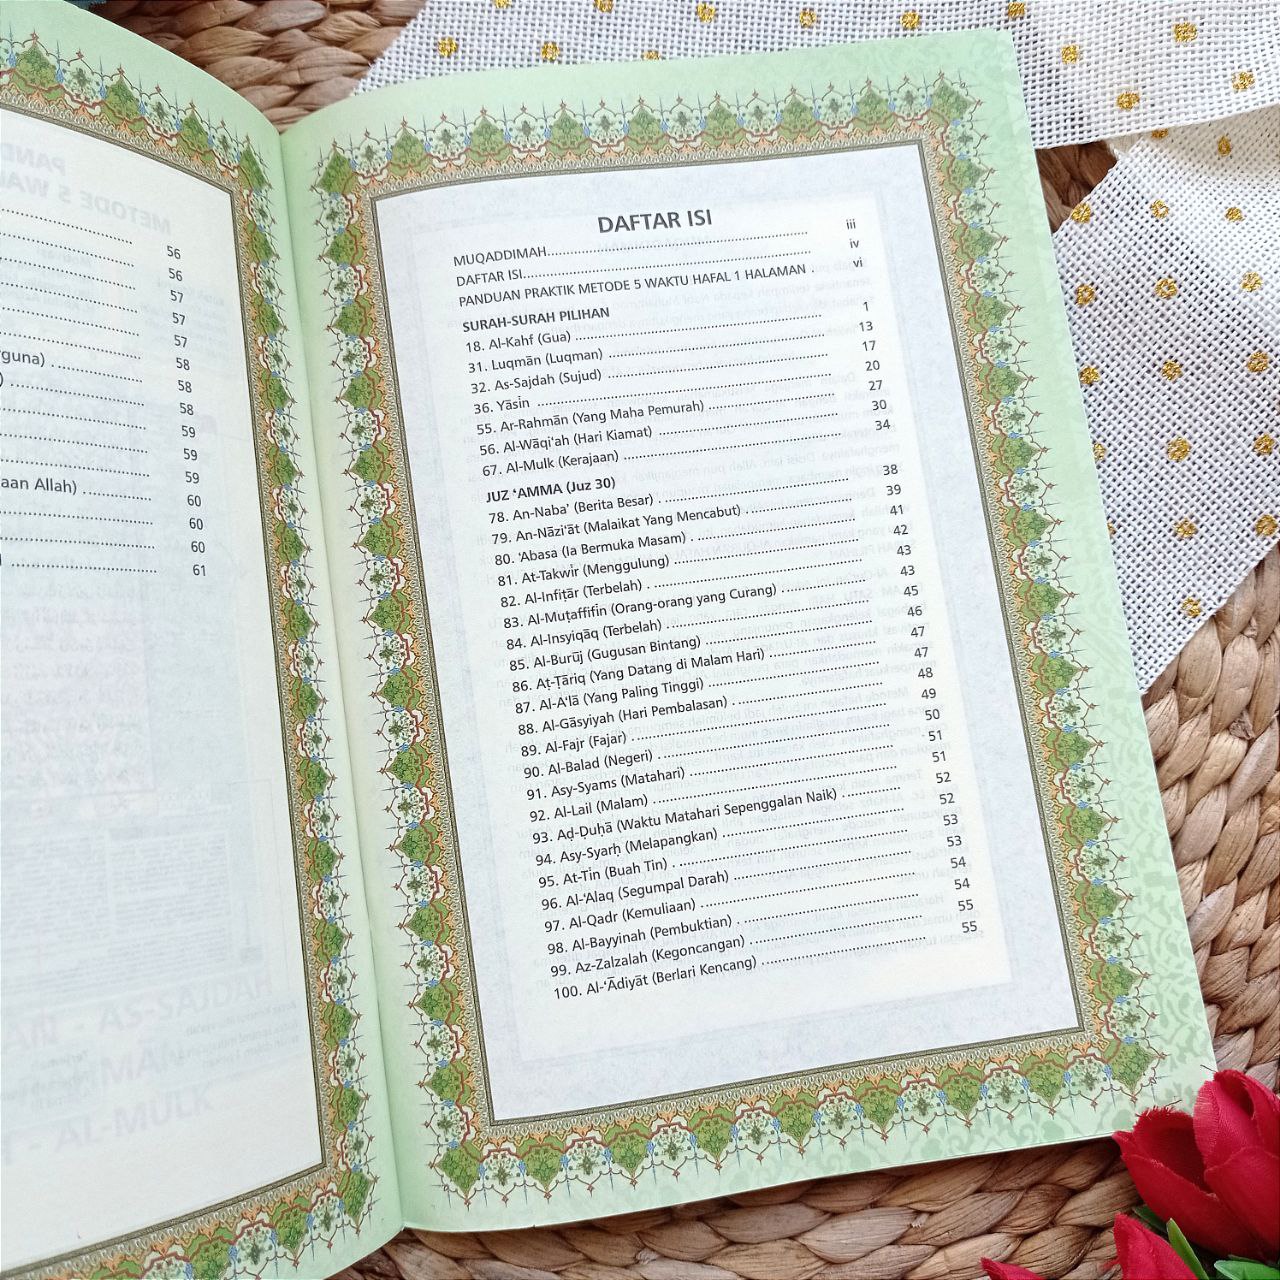 DAFTAR ISI
MUQADDIMAH iii
DAFTAR ISI iv
PANDUAN PRAKTIK METODE 5 WAKTU HAFAL 1 HALAMAN vi
SURAH-SURAH PILIHAN
18. Al-Kahf (Gua) 1
31. Luqmān (Luqman) 13
32. As-Sajdah (Sujud) 17
36. Yāsīn 20
55. Ar-Rahmān (Yang Maha Pemurah) 27
56. Al-Wāqi'ah (Hari Kiamat) 30
67. Al-Mulk (Kerajaan) 34
JUZ ‘AMMA (Juz 30)
78. An-Naba’ (Berita Besar) 38
79. An-Nāzi'āt (Malaikat Yang Mencabut) 39
80. ‘Abasa (Ia Bermuka Masam) 41
81. At-Takwīr (Menggulung) 42
82. Al-Infiṭār (Terbelah) 43
83. Al-Muṭaffifīn (Orang-orang yang Curang) 43
84. Al-Insyiqāq (Terbelah) 45
85. Al-Burūj (Gugusan Bintang) 46
86. Aṭ-Ṭāriq (Yang Datang di Malam Hari) 47
87. Al-A'lā (Yang Paling Tinggi) 47
88. Al-Gāsyiyah (Hari Pembalasan) 48
89. Al-Fajr (Fajar) 49
90. Al-Balad (Negeri) 50
91. Asy-Syams (Matahari) 51
92. Al-Lail (Malam) 51
93. Aḍ-Ḍuḥā (Waktu Matahari Sepenggalan Naik) 52
94. Asy-Syarḥ (Melapangkan) 52
95. At-Tīn (Buah Tin) 53
96. Al-‘Alaq (Segumpal Darah) 53
97. Al-Qadr (Kemuliaan) 54
98. Al-Bayyinah (Pembuktian) 54
99. Az-Zalzalah (Kegoncangan) 55
100. Al-‘Ādiyāt (Berlari Kencang) 55
56
56
57
57
57
58
58
58
59
59
59
60
60
60
61